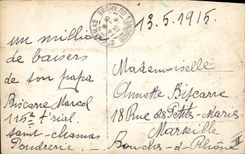 13.5.1915.
un million
de baisers
de son papa
Biscarre Marcel
115e Territ.
Saint-Chamas
Poudrerie
Mademoiselle
Annette Biscarre
18 Rue des Petites-Maries
Marseille
Bouches-du-Rhône